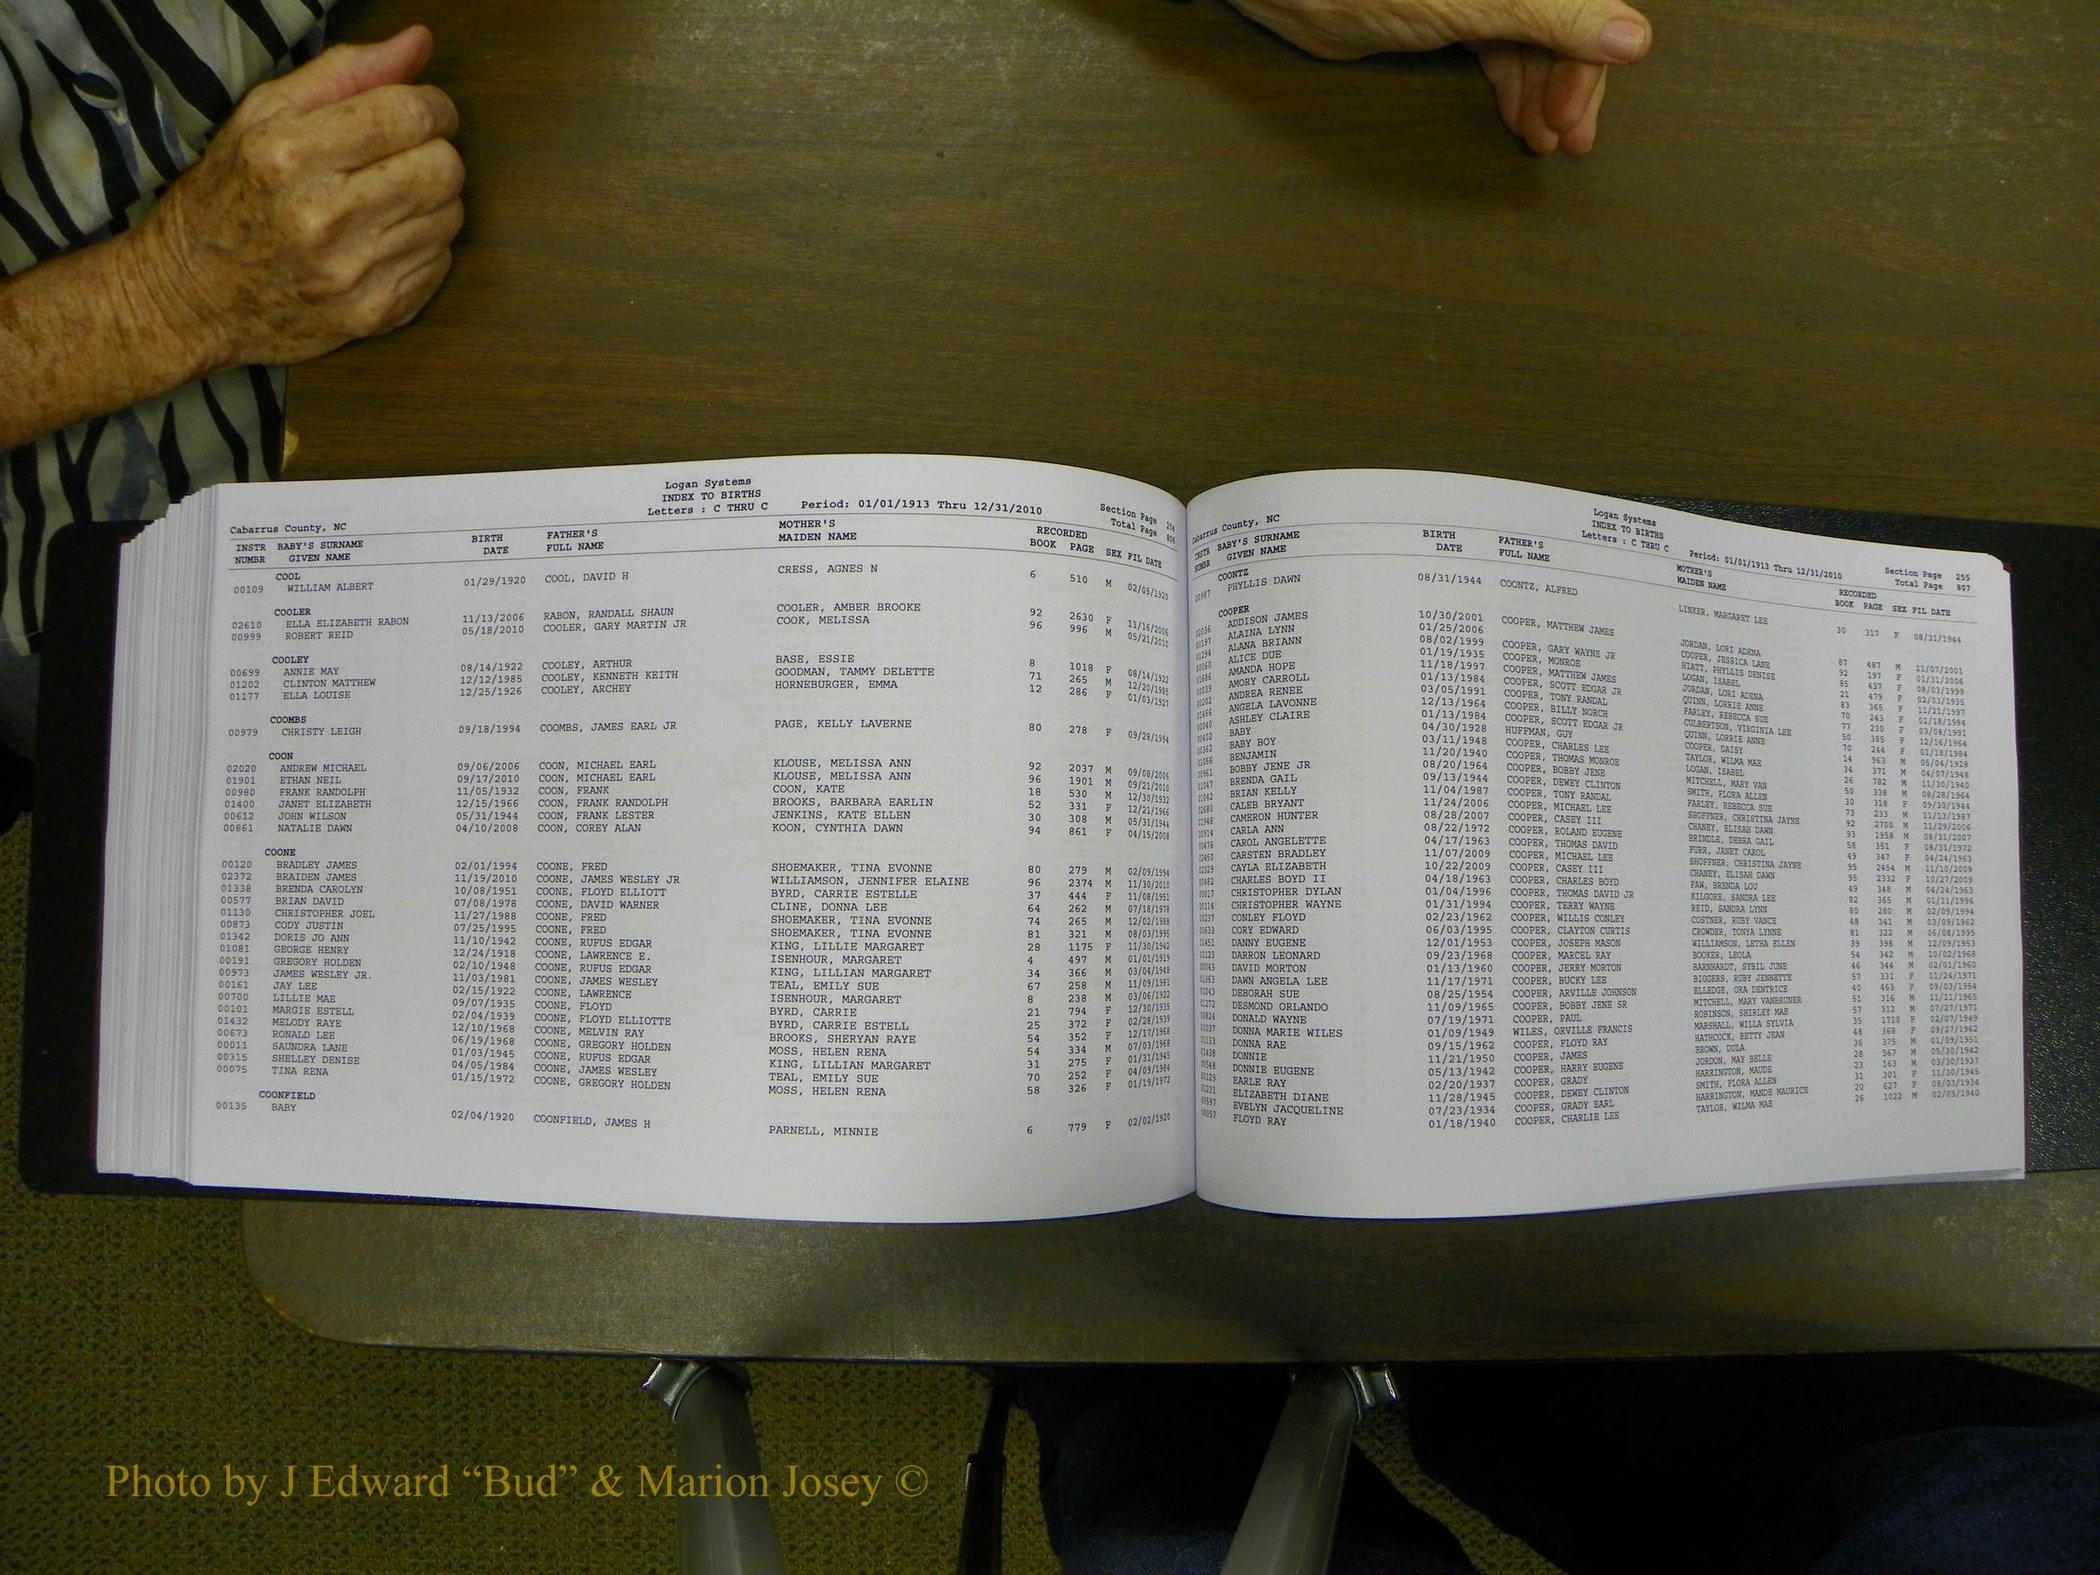 Logan Systems
INDEX TO BIRTHS
Letters : C THRU C Period: 01/01/1913 Thru 12/31/2010
Section Page 254
Total Page 806
Cabarrus County, NC
INSTR BABY'S SURNAME BIRTH FATHER'S MOTHER'S RECORDED
NUMBR GIVEN NAME DATE FULL NAME MAIDEN NAME BOOK PAGE SEX FIL DATE
COOL
00109 WILLIAM ALBERT 01/29/1920 COOL, DAVID H CRESS, AGNES N 6 510 M 02/05/1920
COOLER
02610 ELLA ELIZABETH RABON 11/13/2006 RABON, RANDALL SHAUN COOLER, AMBER BROOKE 92 2630 F 11/16/2006
00999 ROBERT REID 05/18/2010 COOLER, GARY MARTIN JR COOK, MELISSA 96 996 M 05/21/2010
COOLEY
00699 ANNIE MAY 08/14/1922 COOLEY, ARTHUR BASE, ESSIE 8 1018 F 08/14/1922
01202 CLINTON MATTHEW 12/12/1985 COOLEY, KENNETH KEITH GOODMAN, TAMMY DELETTE 71 265 M 12/20/1985
01177 ELLA LOUISE 12/25/1926 COOLEY, ARCHEY HORNEBURGER, EMMA 12 286 F 01/03/1927
COOMBS
00979 CHRISTY LEIGH 09/18/1994 COOMBS, JAMES EARL JR PAGE, KELLY LAVERNE 80 278 F 09/28/1994
COON
02020 ANDREW MICHAEL 09/06/2006 COON, MICHAEL EARL KLOUSE, MELISSA ANN 92 2037 M 09/08/2006
01901 ETHAN NEIL 09/17/2010 COON, MICHAEL EARL KLOUSE, MELISSA ANN 96 1901 M 09/21/2010
00980 FRANK RANDOLPH 11/05/1932 COON, FRANK COON, KATE 18 530 M 12/30/1932
01400 JANET ELIZABETH 12/15/1966 COON, FRANK RANDOLPH BROOKS, BARBARA EARLIN 52 331 F 12/21/1966
00612 JOHN WILSON 05/31/1944 COON, FRANK LESTER JENKINS, KATE ELLEN 30 308 M 05/31/1944
00861 NATALIE DAWN 04/10/2008 COON, COREY ALAN KOON, CYNTHIA DAWN 94 861 F 04/15/2008
COONE
00120 BRADLEY JAMES 02/01/1994 COONE, FRED SHOEMAKER, TINA EVONNE 80 279 M 02/09/1994
02372 BRAIDEN JAMES 11/19/2010 COONE, JAMES WESLEY JR WILLIAMSON, JENNIFER ELAINE 96 2374 M 11/30/2010
01338 BRENDA CAROLYN 10/08/1951 COONE, FLOYD ELLIOTT BYRD, CARRIE ESTELLE 37 444 F 11/08/1951
00577 BRIAN DAVID 07/08/1978 COONE, DAVID WARNER CLINE, DONNA LEE 64 262 M 07/18/1978
01130 CHRISTOPHER JOEL 11/27/1988 COONE, FRED SHOEMAKER, TINA EVONNE 74 265 M 12/02/1988
00873 CODY JUSTIN 07/25/1995 COONE, FRED SHOEMAKER, TINA EVONNE 81 321 M 08/03/1995
01342 DORIS JO ANN 11/10/1942 COONE, RUFUS EDGAR KING, LILLIE MARGARET 28 1175 F 11/30/1942
01081 GEORGE HENRY 12/24/1918 COONE, LAWRENCE E. ISENHOUR, MARGARET 4 497 M 01/01/1919
00191 GREGORY HOLDEN 02/10/1948 COONE, RUFUS EDGAR KING, LILLIAN MARGARET 34 366 M 03/04/1948
00973 JAMES WESLEY JR. 11/03/1981 COONE, JAMES WESLEY TEAL, EMILY SUE 67 258 M 11/09/1981
00161 JAY LEE 02/15/1922 COONE, LAWRENCE ISENHOUR, MARGARET 8 238 M 03/06/1922
00700 LILLIE MAE 09/07/1935 COONE, FLOYD BYRD, CARRIE 21 794 F 12/30/1935
00101 MARGIE ESTELL 02/04/1939 COONE, FLOYD ELLIOTTE BYRD, CARRIE ESTELL 25 372 F 02/28/1939
01432 MELODY RAYE 12/10/1968 COONE, MELVIN RAY BROOKS, SHERYAN RAYE 54 352 F 12/17/1968
00673 RONALD LEE 06/19/1968 COONE, GREGORY HOLDEN MOSS, HELEN RENA 54 334 M 07/03/1968
00011 SAUNDRA LANE 01/03/1945 COONE, RUFUS EDGAR KING, LILLIAN MARGARET 31 275 F 01/31/1945
00315 SHELLEY DENISE 04/05/1984 COONE, JAMES WESLEY TEAL, EMILY SUE 70 252 F 04/09/1984
00075 TINA RENA 01/15/1972 COONE, GREGORY HOLDEN MOSS, HELEN RENA 58 326 F 01/19/1972
COONFIELD
00135 BABY 02/04/1920 COONFIELD, JAMES H PARNELL, MINNIE 6 779 F 02/02/1920
Logan Systems
INDEX TO BIRTHS
Letters : C THRU C Period: 01/01/1913 Thru 12/31/2010
Section Page 255
Total Page 807
Cabarrus County, NC
INSTR BABY'S SURNAME BIRTH FATHER'S MOTHER'S RECORDED
NUMBR GIVEN NAME DATE FULL NAME MAIDEN NAME BOOK PAGE SEX FIL DATE
COONTZ
00987 PHYLLIS DAWN 08/31/1944 COONTZ, ALFRED LINKER, MARGARET LEE 30 317 F 08/31/1944
COOPER
02036 ADDISON JAMES 10/30/2001 COOPER, MATTHEW JAMES JORDAN, LORI ADENA 87 487 M 11/07/2001
00197 ALAINA LYNN 01/25/2006 COOPER, JESSICA LANE 92 197 F 01/31/2006
01294 ALANA BRIANN 08/02/1999 COOPER, GARY WAYNE JR HIATT, PHYLLIS DENISE 85 437 F 08/03/1999
00060 ALICE DUE 01/19/1935 COOPER, MONROE LOGAN, ISABEL 21 479 F 02/03/1935
01686 AMANDA HOPE 11/18/1997 COOPER, MATTHEW JAMES JORDAN, LORI ADENA 83 365 F 11/21/1997
00039 AMORY CARROLL 01/13/1984 COOPER, SCOTT EDGAR JR QUINN, LORRIE ANNE 70 243 F 01/18/1984
00202 ANDREA RENEE 03/05/1991 COOPER, TONY RANDAL FARLEY, REBECCA SUE 77 230 F 03/08/1991
01466 ANGELA LAVONNE 12/13/1964 COOPER, BILLY NORCH CULBERTSON, VIRGINIA LEE 50 385 F 12/16/1964
00040 ASHLEY CLAIRE 01/13/1984 COOPER, SCOTT EDGAR JR QUINN, LORRIE ANNE 70 244 F 01/18/1984
00402 BABY 04/30/1928 HUFFMAN, GUY COOPER, DAISY 14 963 M 05/04/1928
00362 BABY BOY 03/11/1948 COOPER, CHARLES LEE TAYLOR, WILMA MAE 34 371 M 04/07/1948
01066 BENJAMIN 11/20/1940 COOPER, THOMAS MONROE LOGAN, ISABEL 26 782 M 11/30/1940
00961 BOBBY JENE JR 08/20/1964 COOPER, BOBBY JENE MITCHELL, MARY VAN 50 338 M 08/28/1964
01047 BRENDA GAIL 09/13/1944 COOPER, DEWEY CLINTON SMITH, FLORA ALLEN 30 318 F 09/30/1944
01042 BRIAN KELLY 11/04/1987 COOPER, TONY RANDAL FARLEY, REBECCA SUE 73 233 M 11/13/1987
02680 CALEB BRYANT 11/24/2006 COOPER, MICHAEL LEE SHOFFNER, CHRISTINA JAYNE 92 2700 M 11/29/2006
01948 CAMERON HUNTER 08/28/2007 COOPER, CASEY III CHANEY, ELISAH DAWN 93 1958 M 08/31/2007
00914 CARLA ANN 08/22/1972 COOPER, ROLAND EUGENE BRINDLE, DEBRA GAIL 58 351 F 08/31/1972
00476 CAROL ANGELETTE 04/17/1963 COOPER, THOMAS DAVID FURR, JANET CAROL 49 347 F 04/24/1963
02450 CARSTEN BRADLEY 11/07/2009 COOPER, MICHAEL LEE SHOFFNER, CHRISTINA JAYNE 95 2454 M 11/10/2009
02329 CAYLA ELIZABETH 10/22/2009 COOPER, CASEY III CHANEY, ELISAH DAWN 95 2332 F 10/27/2009
00482 CHARLES BOYD II 04/18/1963 COOPER, CHARLES BOYD FAW, BRENDA LOU 49 348 M 04/24/1963
00017 CHRISTOPHER DYLAN 01/04/1996 COOPER, THOMAS DAVID JR KILGORE, SANDRA LEE 82 365 M 01/11/1996
00114 CHRISTOPHER WAYNE 01/31/1994 COOPER, TERRY WAYNE REID, SANDRA LYNN 80 280 M 02/09/1994
00237 CONLEY FLOYD 02/23/1962 COOPER, WILLIS CONLEY COSTNER, RUBY VANCE 48 341 M 03/09/1962
00633 CORY EDWARD 06/03/1995 COOPER, CLAYTON CURTIS CROWDER, TONYA LYNNE 81 322 M 06/08/1995
01451 DANNY EUGENE 12/01/1953 COOPER, JOSEPH MASON WILLIAMSON, LETHA ELLEN 39 398 M 12/09/1953
01123 DARRON LEONARD 09/23/1968 COOPER, MARCEL RAY BOOKER, LEOLA 54 342 M 10/02/1968
00043 DAVID MORTON 01/13/1960 COOPER, JERRY MORTON BARNHARDT, SYBIL JUNE 46 344 M 02/01/1960
01363 DAWN ANGELA LEE 11/17/1971 COOPER, BUCKY LEE BIGGERS, RUBY JENNETTE 57 331 F 11/24/1971
01043 DEBORAH SUE 08/25/1954 COOPER, ARVILLE JOHNSON ELLEDGE, ORA DENTRICE 40 463 F 09/03/1954
01272 DESMOND ORLANDO 11/09/1965 COOPER, BOBBY JENE SR MITCHELL, MARY VANBRUNER 51 316 M 11/11/1965
00824 DONALD WAYNE 07/19/1971 COOPER, PAUL ROBINSON, SHIRLEY MAE 57 312 M 07/27/1971
00037 DONNA MARIE WILES 01/09/1949 WILES, ORVILLE FRANCIS MARSHALL, WILLA SYLVIA 35 1710 F 02/07/1949
01133 DONNA RAE 09/15/1962 COOPER, FLOYD RAY HATHCOCK, BETTY JEAN 48 368 F 09/27/1962
01438 DONNIE 11/21/1950 COOPER, JAMES BROWN, DULA 36 375 M 01/09/1951
00548 DONNIE EUGENE 05/13/1942 COOPER, HARRY EUGENE JORDON, MAY BELLE 28 567 M 05/30/1942
00129 EARLE RAY 02/20/1937 COOPER, GRADY HARRINGTON, MAUDE 23 163 M 03/30/1937
01231 ELIZABETH DIANE 11/28/1945 COOPER, DEWEY CLINTON SMITH, FLORA ALLEN 31 301 F 11/30/1945
00597 EVELYN JACQUELINE 07/23/1934 COOPER, GRADY EARL HARRINGTON, MANDE MAURICE 20 627 F 08/03/1934
00057 FLOYD RAY 01/18/1940 COOPER, CHARLIE LEE TAYLOR, WILMA MAE 26 1022 M 02/05/1940
Photo by J Edward “Bud” & Marion Josey ©